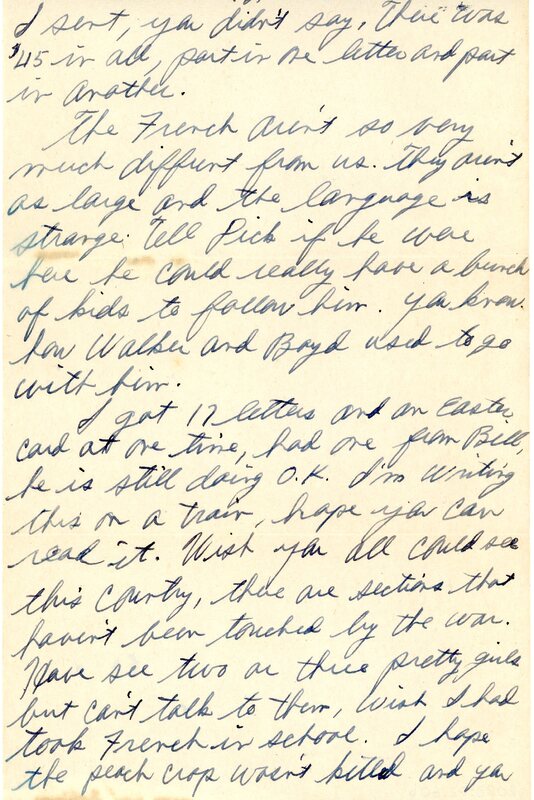 I sent, you didn't say. There was
$45 in all, part in one letter and part
in another.
The French aren't so very
much diffirent from us. They aren't
as large and the language is
strange. Tell Pick if he were
here he could really have a bunch
of kids to follow him. You know
how Walker and Boyd used to go
with him.
I got 17 letters and an Easter
card at one time, had one from Bill,
he is still doing O.K. I'm writing
this on a train, hope you can
read it. Wish you all could see
this country, there are sections that
haven't been touched by the war.
Have see two or three pretty girls
but can't talk to them, wish I had
took French in school. I hope
the peach crop wasn't killed and you